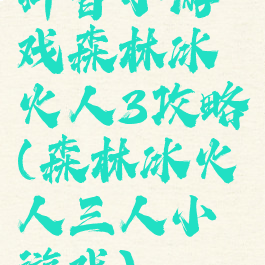 抖音小游
戏森林冰
火人3攻略
(森林冰火
人三人小
游戏)